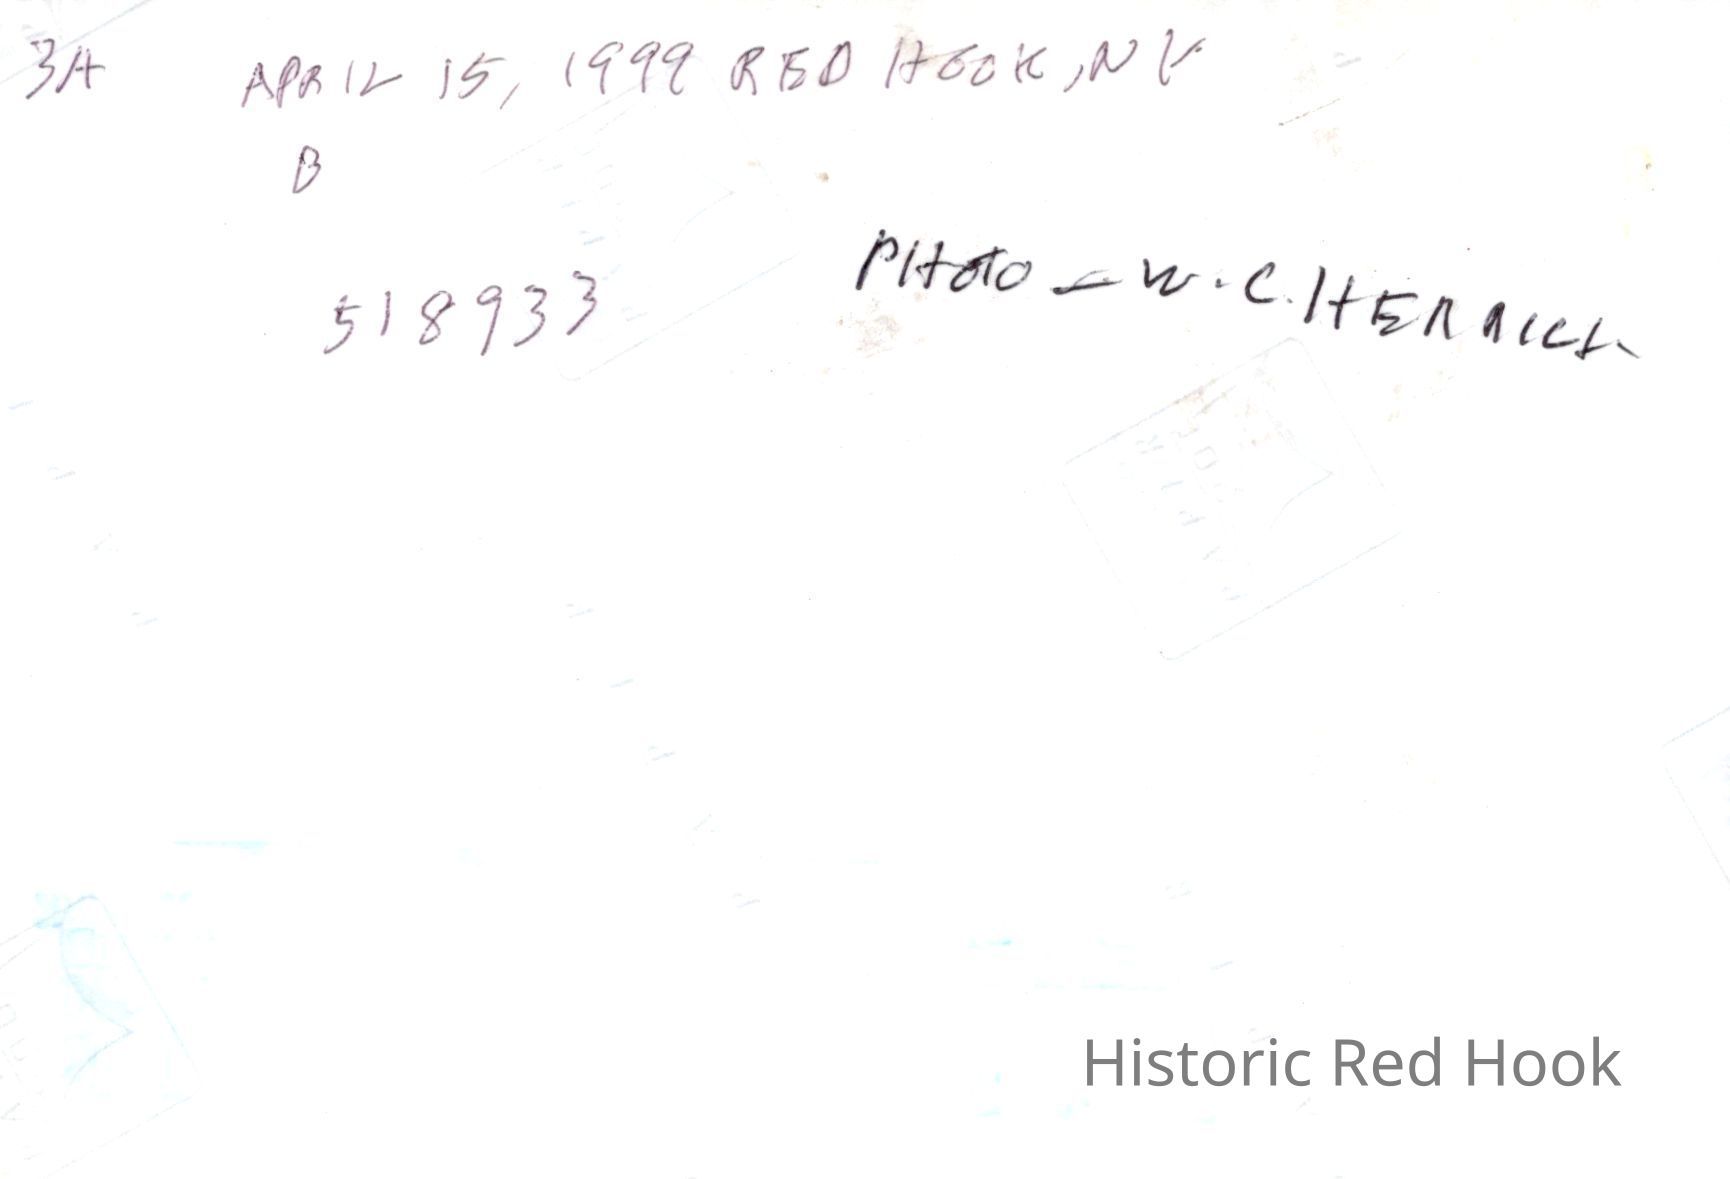 3A APRIL 15, 1999 RED HOOK, NY
B
518933
PHOTO - W.C. HERRICK
Historic Red Hook